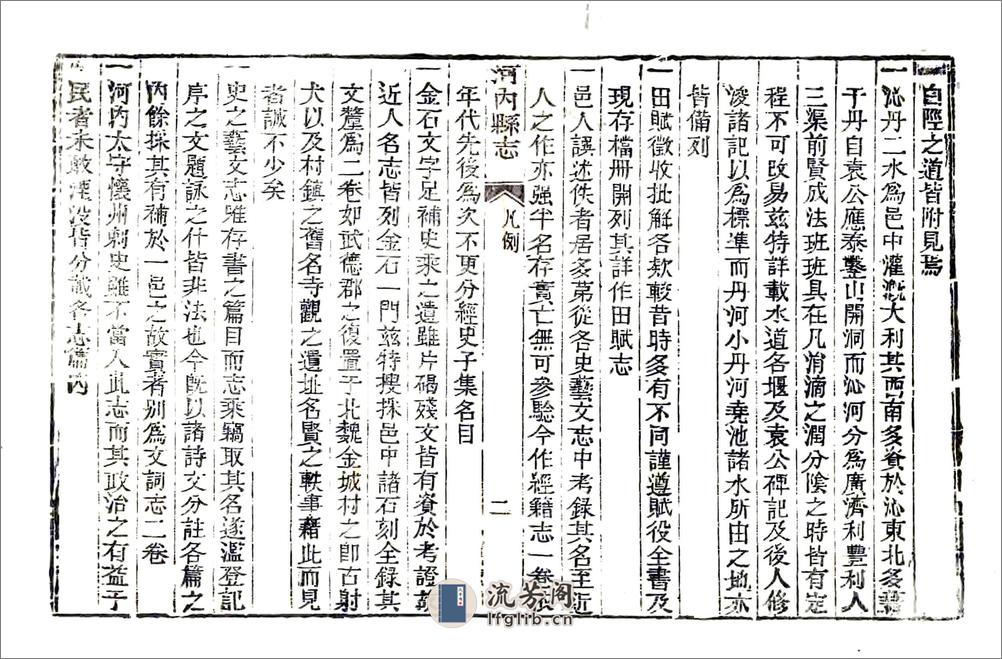 白陘之道皆附見焉
一沁丹二水為邑中灌溉大利其西南多資於沁東北多藉
于丹自袁公應泰鑿山開洞而沁河分為廣濟利豐利人
三渠前賢成法班班具在凡涓滴之潤分陰之時皆有定
程不可改易茲特詳載水道各堰及袁公碑記及後人修
浚諸記以為標準而丹河小丹河堯池諸水所由之地亦
皆備列
一田賦徵收批解各款較昔時多有不同謹遵賦役全書及
現存檔冊開列其詳作田賦志
一邑人譔述佚者居多第從各史藝文志中考錄其名至近
人之作亦强半名存實亡無可參驗今作經籍志一卷
河內縣志
凡例
二
年代先後為次不更分經史子集名目
一金石文字足補史乘之遺雖片碣殘文皆有資於考證
近人名志皆列金石一門茲特搜採邑中諸石刻全錄其
文釐為二卷如武德郡之復置于北魏金城村之即古射
犬以及村鎮之舊名寺觀之遺址名賢之軼事藉此而見
者誠不少矣
一史之藝文志雖存書之篇目而志乘竊取其名遂濫登記
序之文題詠之什皆非法也今既以諸詩文分註各篇之
內餘採其有補於一邑之故實者別為文詞志二卷
一河內太守懷州刺史雖不當入此志而其政治之有益于
民者未敢湮沒皆分識各志篇內
流芳阁
lfglib.cn